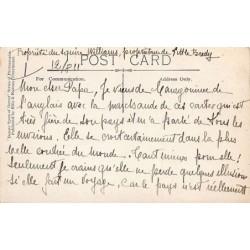 Propriété du squire Williams, propriétaire de Little Bredy
12/8/11
POST CARD
For Communication.
Address Only.
Mon cher Papa, Je viens de
l'anglais avec la marchande de ces cartes qui est
très fière de son pays et m'a parlé de tous les
environs. Elle se croit certainement dans la plus
belle contrée du monde. Tant mieux pour elle!
Seulement je crains qu'elle ne perde quelques illusions
si elle fait un voyage, car le pays n'est réellement